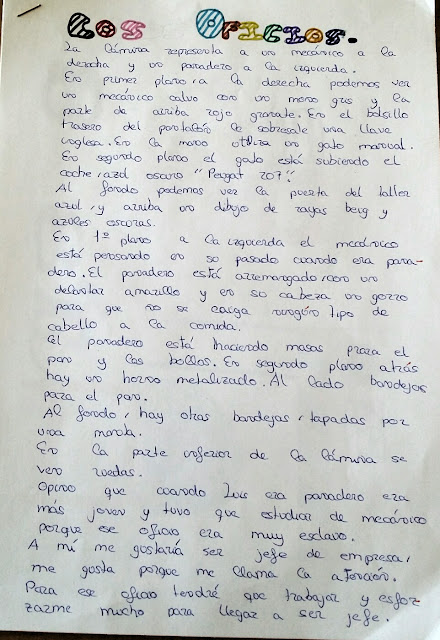 Los Oficios.
La lámina representa a un mecánico a la
derecha y un panadero a la izquierda.
En primer plano, a la derecha podemos ver
un mecánico calvo con un mono gris y la
parte de arriba rojo granate. En el bolsillo
trasero del pantalón le sobresale una llave
inglesa. En la mano utiliza un gato manual.
En segundo plano el gato está subiendo el
coche, azul oscuro "Peugot 207".
Al fondo podemos ver la puerta del taller
azul, y arriba un dibujo de rayas beig y
azules oscuras.
En 1º plano a la izquierda el mecánico
está pensando en su pasado cuando era pana-
dero. El panadero está arremangado, con un
delantar amarillo y en su cabeza un gorro
para que no se caiga ningún tipo de
cabello a la comida.
El panadero está haciendo masas para el
pan y los bollos. En segundo plano atrás
hay un horno metalizado. Al lado bandejas
para el pan.
Al fondo, hay otras bandejas, tapadas por
una manta.
En la parte inferior de la lámina se
ven ruedas.
Opino que cuando Luis era panadero era
más joven y tuvo que estudiar de mecánico
porque ese oficio era muy esclavo.
A mí me gustaría ser jefe de empresa,
me gusta porque me llama la atención.
Para ese oficio tendré que trabajar y esfor
zarme mucho para llegar a ser jefe.